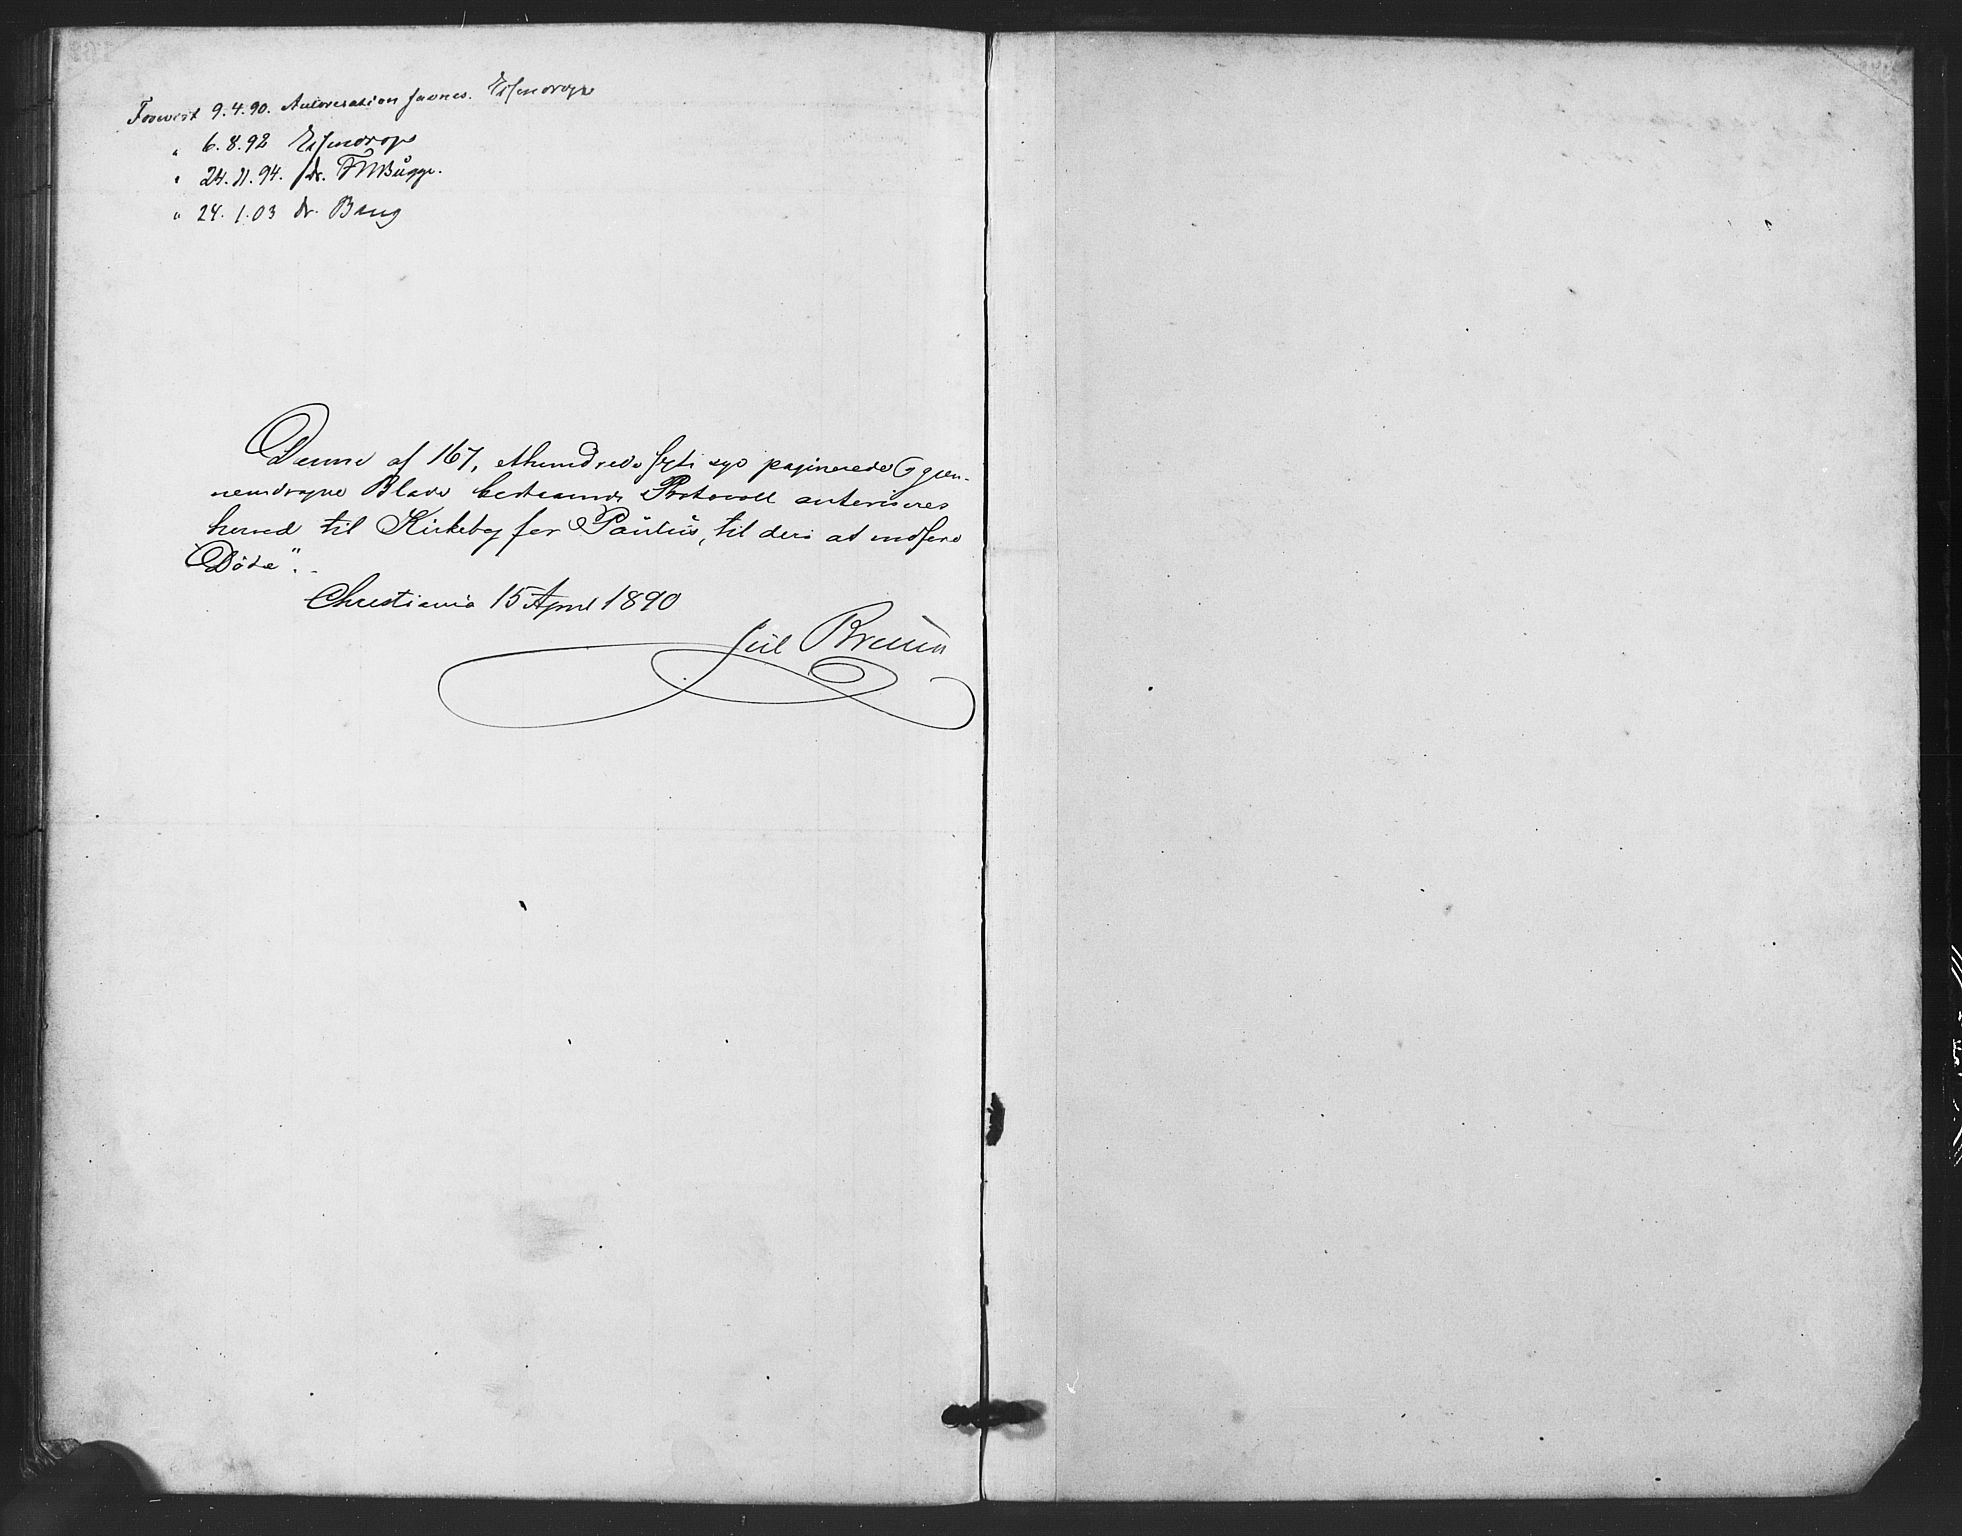 Forevist 9.4.90. Autorisation savnes. Essendrop
" 6.8.92 Essendrop
" 24.11.94. fr. F W Bugge.
" 24.1.03 fr. Bang
Denne af 167, ethundrede sexti syv paginerede og gjen-
nemdragne Blade bestaaende Protocoll autoriseres
herved til Kirkebog for Paulus, til deri at indføre
"Døde".-
Christiania 15 April 1890
Jul Bruun